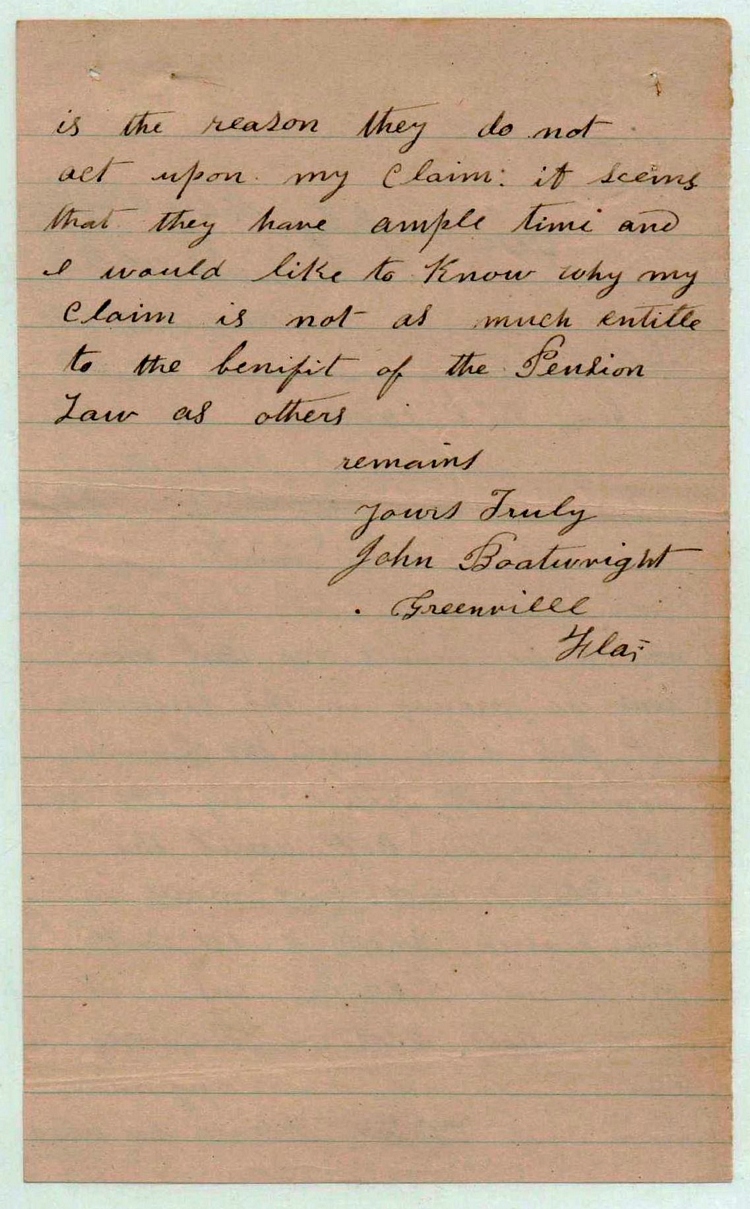 is the reason they do not
act upon my Claim: it seems
that they have ample time and
I would like to Know why my
Claim is not as much entitle
to the benifit of the Pension
Law as others
remains
yours Truly
John Boatwright
Greenville
Fla;